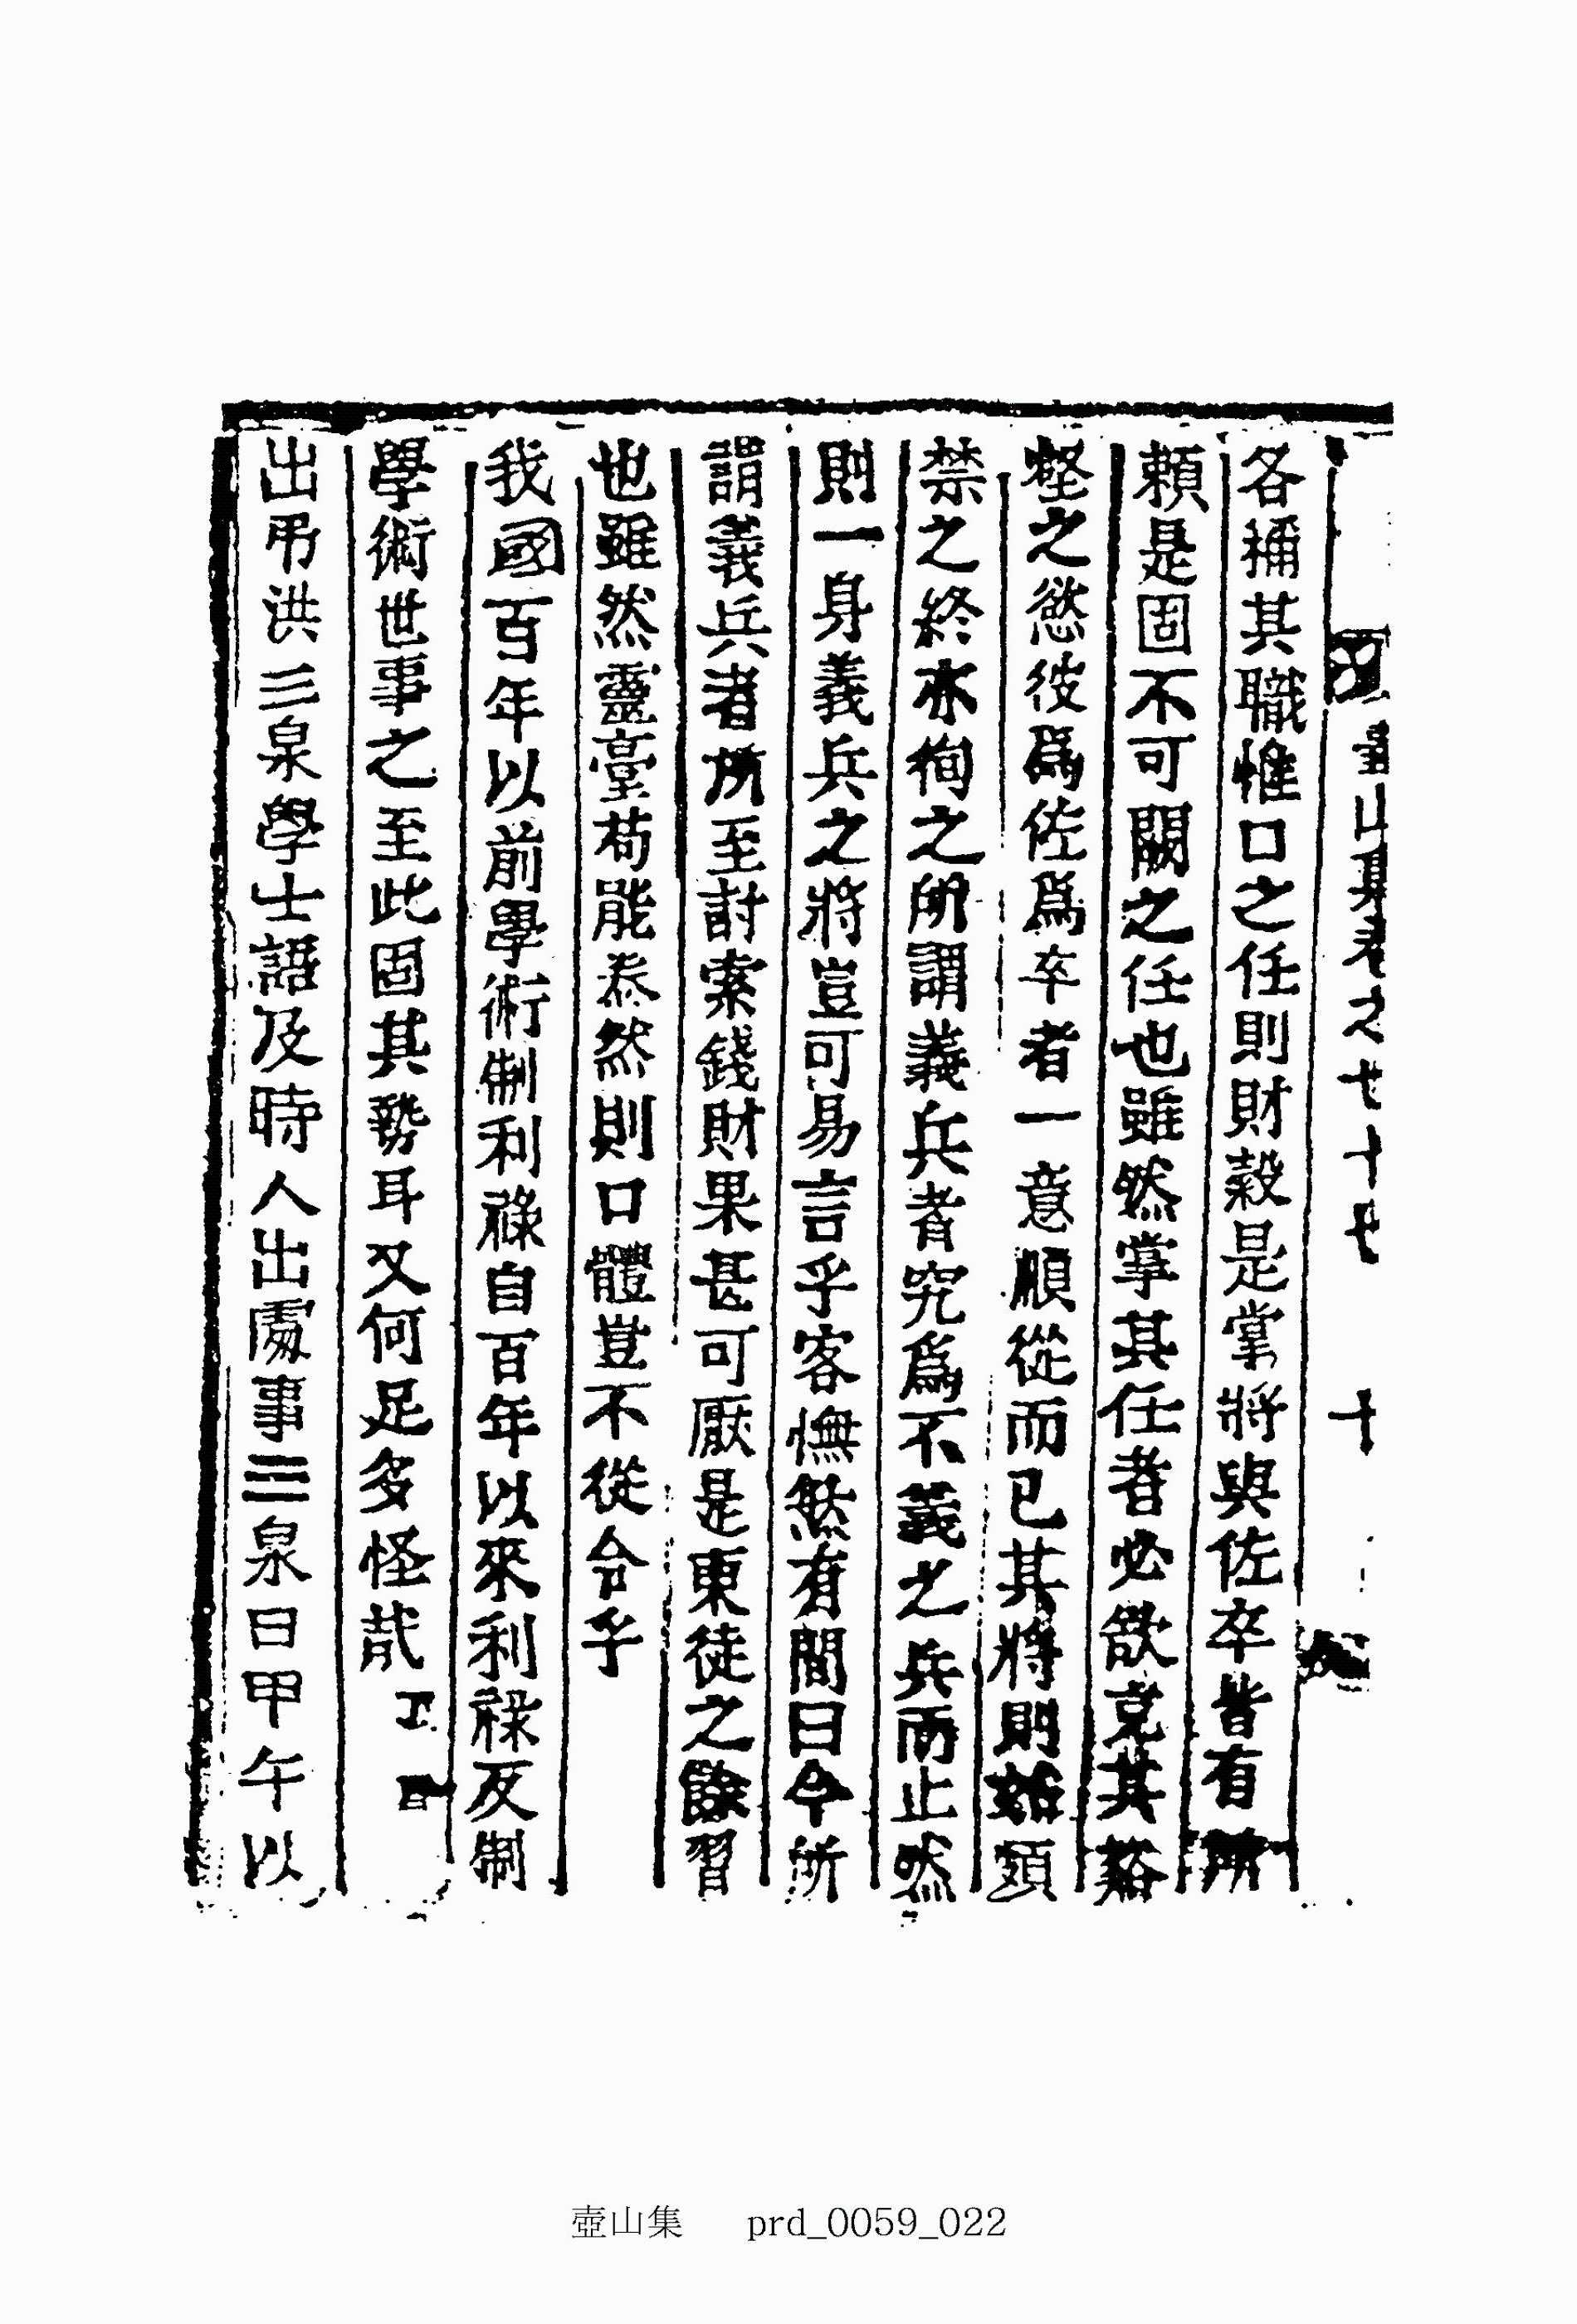 壺山集卷之七十七 十
各補其職惟口之任則財穀是掌將與佐卒皆有所
賴是固不可闕之任也雖然掌其任者必欲克其谿
壑之慾彼爲佐爲卒者一意順從而已其將則始頗
禁之終亦徇之所謂義兵者究爲不義之兵而止然
則一身義兵之將豈可易言乎客憮然有間曰今所
謂義兵者所至討索錢財果甚可厭是東徒之餘習
也雖然靈臺苟能泰然則口體豈不從令乎
我國百年以前學術制利祿自百年以來利祿反制
學術世事之至此固其勢耳又何足多怪哉 丁酉
出弔洪三泉學士語及時人出處事三泉曰甲午以
壺山集 prd_0059_022